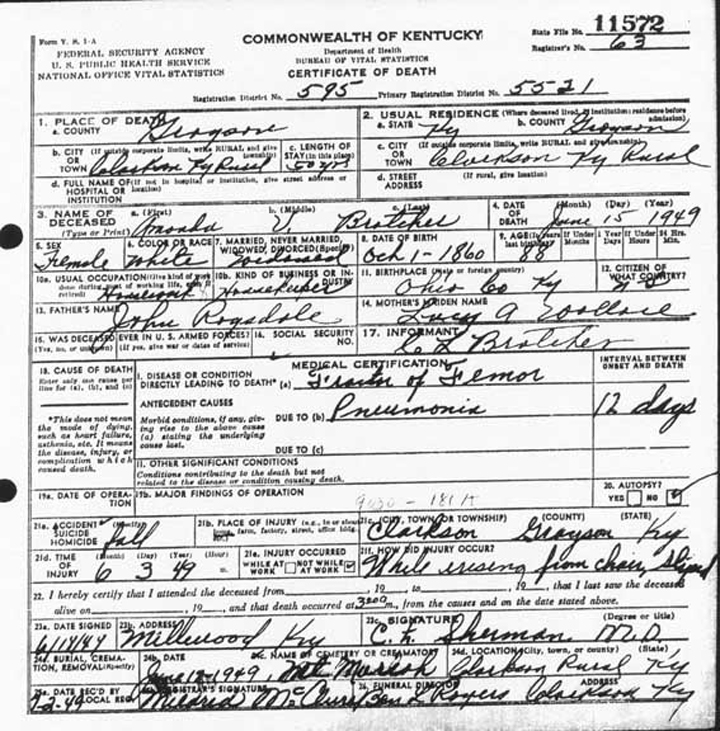 Form V. S. 1-A
COMMONWEALTH OF KENTUCKY
State File No. 11572
FEDERAL SECURITY AGENCY
Department of Health
Registrar's No. 63
U. S. PUBLIC HEALTH SERVICE
BUREAU OF VITAL STATISTICS
NATIONAL OFFICE VITAL STATISTICS
CERTIFICATE OF DEATH
Registration District No. 595 Primary Registration District No. 5521
1. PLACE OF DEATH
a. COUNTY Grayson
2. USUAL RESIDENCE (Where deceased lived. If institution: residence before admission)
a. STATE Ky b. COUNTY Grayson
b. CITY (If outside corporate limits, write RURAL and give township) OR TOWN Clarkson Ky Rural
c. LENGTH OF STAY (in this place) 50 yrs
c. CITY (If outside corporate limits, write RURAL and give township) OR TOWN Clarkson Ky Rural
d. FULL NAME OF (If not in hospital or institution, give street address or location) HOSPITAL OR INSTITUTION
d. STREET ADDRESS (If rural, give location)
3. NAME OF DECEASED (Type or Print) a. (First) b. (Middle) c. (Last)
Amanda V. Bratcher
4. DATE OF DEATH (Month) (Day) (Year)
June 15 1949
5. SEX Female
6. COLOR OR RACE White
7. MARRIED, NEVER MARRIED, WIDOWED, DIVORCED (Specify) widowed
8. DATE OF BIRTH Oct 1-1860
9. AGE (In years last birthday) 88 If Under 1 Year Months Days If Under 24 Hrs. Hours Min.
10a. USUAL OCCUPATION (Give kind of work done during most of working life, even if retired) Housework
10b. KIND OF BUSINESS OR INDUSTRY Housekeeper
11. BIRTHPLACE (State or foreign country) Ohio Co Ky
12. CITIZEN OF WHAT COUNTRY?
13. FATHER'S NAME John Ragsdale
14. MOTHER'S MAIDEN NAME Lucy A Wallace
15. WAS DECEASED EVER IN U. S. ARMED FORCES? (Yes, no, or unknown) (If yes, give war or dates of service)
16. SOCIAL SECURITY NO.
17. INFORMANT Bratcher
18. CAUSE OF DEATH
Enter only one cause per line for (a), (b), and (c)
MEDICAL CERTIFICATION
INTERVAL BETWEEN ONSET AND DEATH
I. DISEASE OR CONDITION DIRECTLY LEADING TO DEATH* (a) of Femor
*This does not mean the mode of dying, such as heart failure, asthenia, etc. It means the disease, injury, or complication which caused death.
ANTECEDENT CAUSES
Morbid conditions, if any, giving rise to the above cause (a) stating the underlying cause last.
DUE TO (b) Pneumonia 12 days
DUE TO (c)
II. OTHER SIGNIFICANT CONDITIONS
Conditions contributing to the death but not related to the disease or condition causing death.
19a. DATE OF OPERATION
19b. MAJOR FINDINGS OF OPERATION
20. AUTOPSY? YES NO
21a. ACCIDENT SUICIDE HOMICIDE (Specify) Fall
21b. PLACE OF INJURY (e.g., in or about home, farm, factory, street, office bldg.,
21c. (CITY, TOWN, OR TOWNSHIP) (COUNTY) (STATE)
Clarkson Grayson Ky
21d. TIME OF INJURY (Month) (Day) (Year) (Hour) m.
6 3 49
21e. INJURY OCCURRED WHILE AT WORK NOT WHILE AT WORK
21f. HOW DID INJURY OCCUR?
While arising from chair, sliped
22. I hereby certify that I attended the deceased from , 19 , to , 19 , that I last saw the deceased
alive on , 19 , and that death occurred at m., from the causes and on the date stated above.
23a. DATE SIGNED
23b. ADDRESS Millwood Ky
23c. SIGNATURE (Degree or title) Sherman M.D.
24a. BURIAL, CREMATION, REMOVAL (Specify)
24b. DATE June 17-1949
24c. NAME OF CEMETERY OR CREMATORY Mt
24d. LOCATION (City, town, or county) (State) Clarkson Rural Ky
25a. DATE REC'D BY LOCAL REG.
25b. REGISTRAR'S SIGNATURE Mildred McClure
26. FUNERAL DIRECTOR ADDRESS
Rogers Clarkson Ky